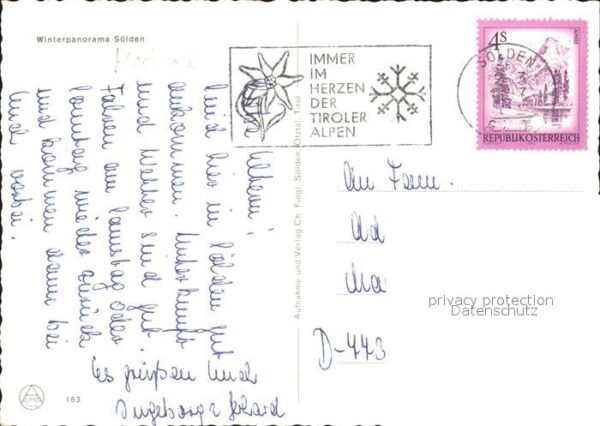 Winterpanorama Sölden
IMMER
IM
HERZEN
DER
TIROLER
ALPEN
SÖLDEN
4 S
REPUBLIK ÖSTERREICH
Aufnahme und Verlag Ch. Fiegl, Sölden, Ötztal, Tirol
Eltern!
Sind hier in Sölden gut
ankommen. Unterkunft
und Wetter sind gut.
Fahren am Samstag oder
Sonntag wieder zurück
und kommen dann bei
Euch vorbei.
Es grüßen Euch
Ingeborg + Ehard
An Fam.
Ad
Ma
D-443
privacy protection
Datenschutz
163